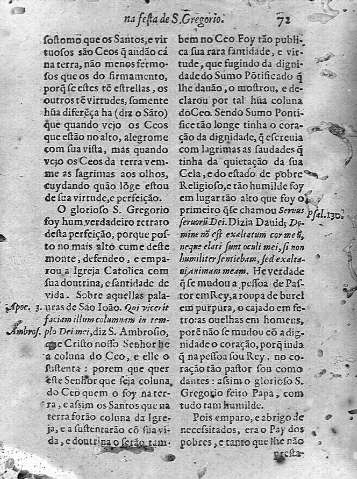 na festa de S. Gregorio. 72
sostomo que os Santos, e vir
tuosos são Ceos q̃ andão cá
na terra, não menos fermo-
sos que os do firmamento,
porq̃ se estes tẽ estrellas, os
outros tẽ virtudes, somente
hũa diferẽça ha (diz o Sãto)
que quando vejo os Ceos
que estão no alto, alegrome
com sua vista, mas quando
vejo os Ceos da terra vem-
me as lagrimas aos olhos,
cuydando quão lõge estou
de sua virtude, e perfeição.
O glorioso S. Gregorio
foy hum verdadeiro retrato
desta perfeição, porque pos-
to no mais alto cume deste
monte, defendeo, e empa-
rou a Igreja Catolica com
sua doutrina, e santidade de
vida. Sobre aquellas pala-
Apoc. 3. uras de São Ioão. Qui vicerit
faciam illum columnam in tem-
Ambros. plo Dei mei, diz S. Ambrosio,
que Cristo nosso Senhor he
a coluna do Ceo, e elle o
sustenta: porem que quer
este Senhor que seja coluna
do Ceo quem o foy na ter-
ra, e assim os Santos que na
terra forão coluna da Igre-
ja, e a sustentarão cõ sua vi-
da, e doutrina o serão tam-
bem no Ceo Foy tão publi-
ca sua rara santidade, e vir-
tude, que fugindo da digni-
dade do Sumo Põtificado q̃
lhe dauão, o mostrou, e de-
clarou por tal hũa coluna
do Ceo. Sendo Sumo Ponti-
fice tão longe tinha o cora-
ção da dignidade, q̃ escreuia
com lagrimas as saudades q̃
tinha da quietação da sua
Cela, e do estado de pobre
Religioso, e tão humilde foy
em lugar tão alto que foy o
primeiro q̃ se chamou Seruus
seruorũ Dei. Dizia Dauid; Do- Psal. 130.
mine nõ est exaltatum cor meũ,
neque elati sunt oculi mei, si non
humiliter sentiebam, sed exalta-
ui animam meam. He verdade
q̃ se mudou a pessoa de Pas-
tor em Rey, a roupa de burel
em purpura, o cajado em se-
tro: as ouelhas em homens,
porẽ não se mudou cõ a dig-
nidade o coração, porq̃ inda
q̃ na pessoa sou Rey, no co-
ração tão pastor sou como
dantes: assim o glorioso S.
Gregorio feito Papa, com
tudo tam humilde.
Pois emparo, e abrigo de
necessitados, era o Pay dos
pobres, e tanto que lhe não